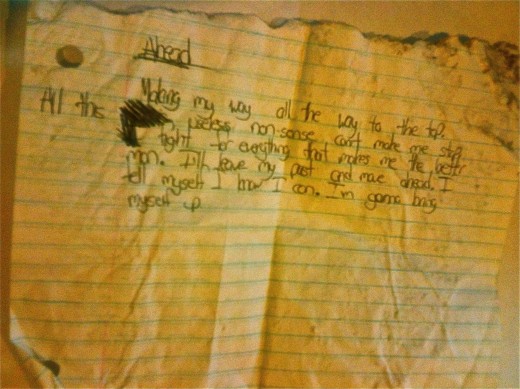 Ahead
Making my way all the way to the top.
All this useless non-sense can't make me stop
I fight for everything that makes me the better
man. I'll leave my past and move ahead. I
tell myself I know I can. I'm gonna bring
myself up